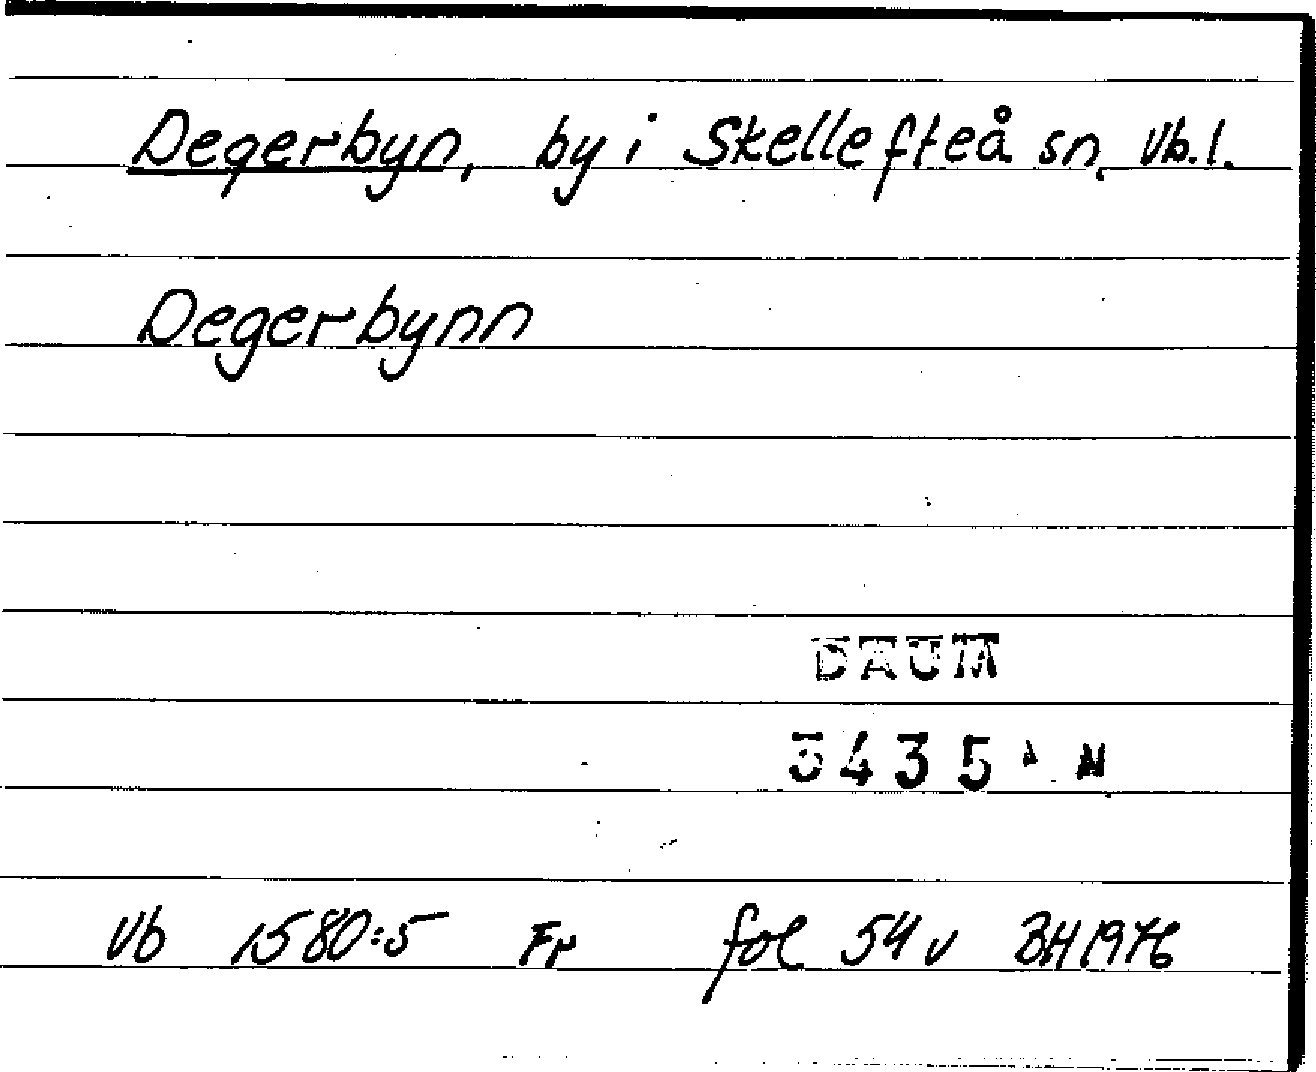 Degerbyn, by i Skellefteå sn, Vb.l.
Degerbynn
DAUM
3435
Vb 1580:5 Fr fol 54 v BH 1976